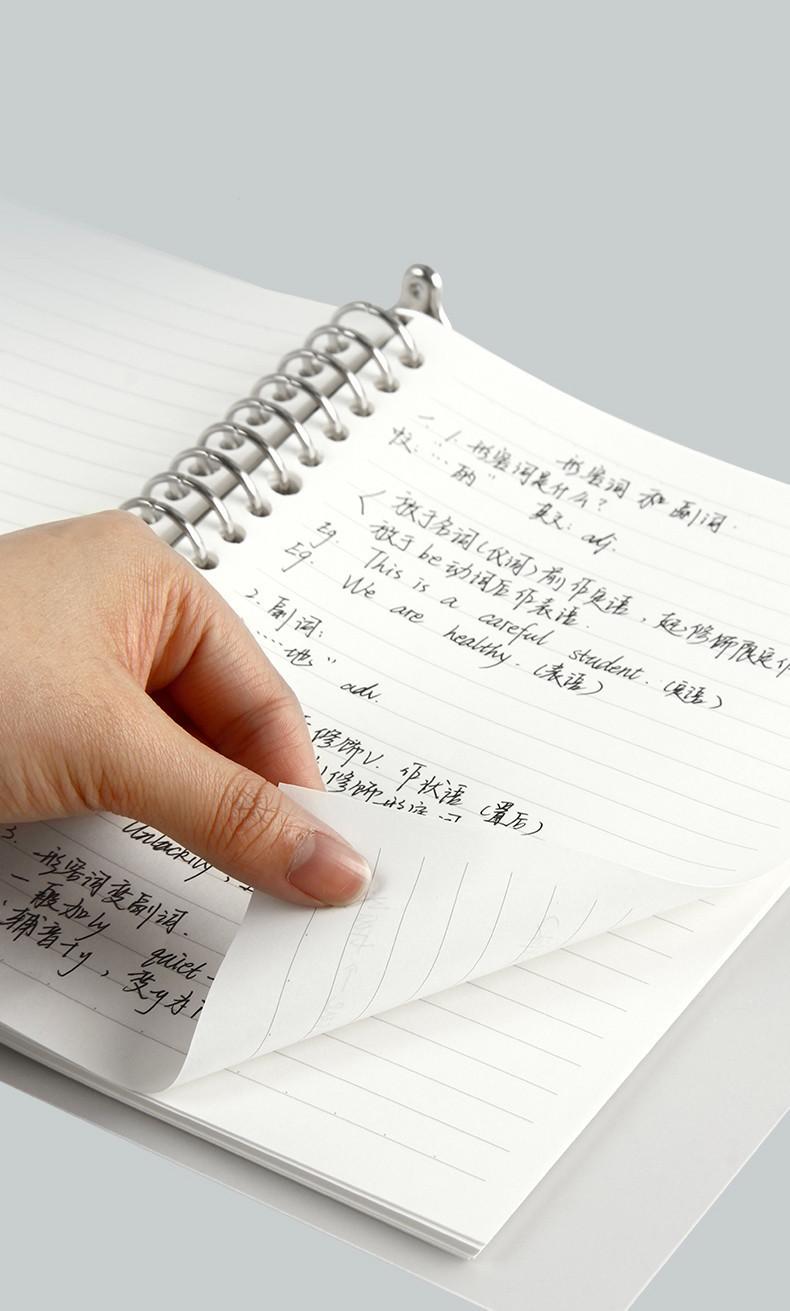 形容词 和 副词.
一、1. 形容词是什么?
"……的" adj.
放于名词(仪词)前作定语,
放于be动词后作表语.
Eg. This is a careful student. (定语)
Eg. We are healthy. (表语)
2. 副词:
"……地" adv.
修饰V. 作状语 (置后)
修饰形容
Unluckily,
3. 形容词变副词.
一般加ly quiet
辅音+y, 变y为i